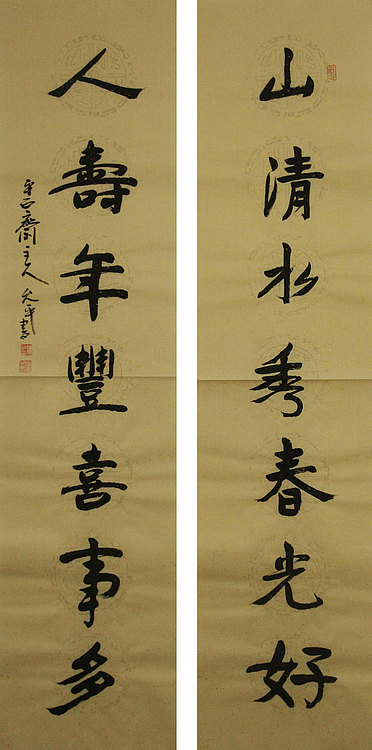 山清水秀春光好
人壽年豐喜事多
平正齋主人 允平書